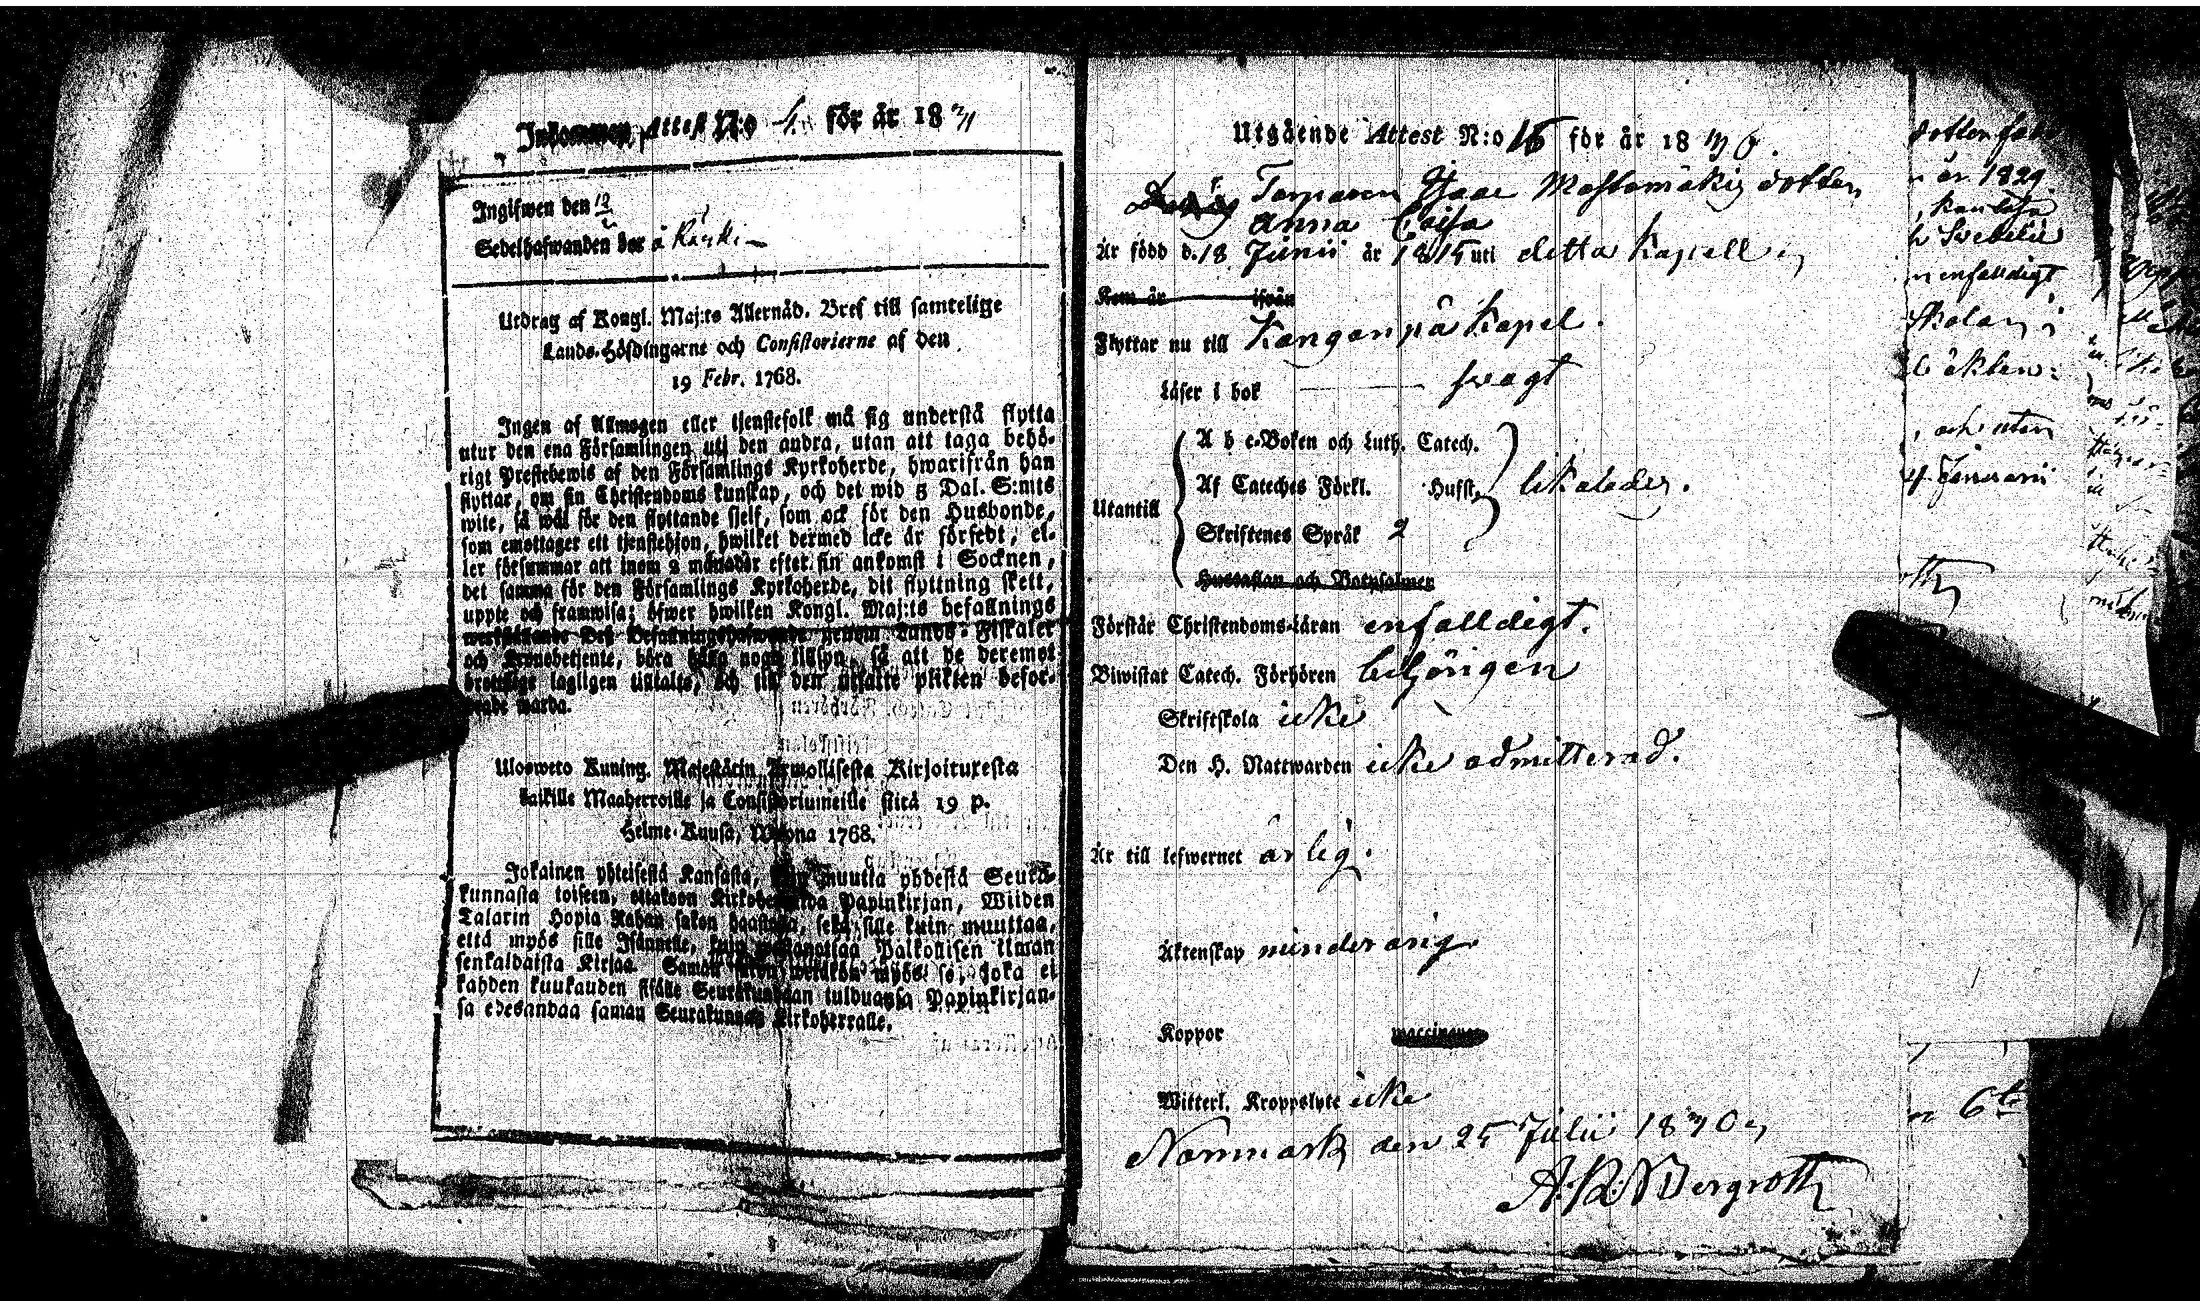 Inkommen Attest N:o 4 för år 1831
Ingifwen den 12/2
Sedelhafwanden bor å Kärki
Utdrag af Kongl. Maj:ts Allernåd. Bref till samtelige
Lands-Höfdingarne och Consistorierne af den
19 Febr. 1768.
Ingen af Allmogen eller tjenstefolk må sig understå flytta
utur den ena Församlingen uti den andra, utan att taga behö-
rigt Prestebewis af den Församlings Kyrkoherde, hwarifrån han
flyttar, om sin Christendoms kunskap, och det wid 5 Dal. S:mts
wite, så wäl för den flyttande sjelf, som ock för den Husbonde,
som emottager ett tjenstehjon, hwilket dermed icke är försedt, el-
ler försummar att inom 2 månader efter sin ankomst i Socknen,
det samma för den Församlings Kyrkoherde, dit flyttning skett,
uppte och framwisa; öfwer hwilken Kongl. Maj:ts befallnings
werkställande Dess Befallningshafwande genom Lands-Fiskaler
och Kronobetjente, böra hafwa noga tillsyn, så att de deremot
brottslige lagligen tilltalte, och till den utsatte plikten befor-
drade warda.
Ulosweto Kuning. Majestätin Armollisesta Kirjoituxesta
kaikille Maaherroille ja Consistoriumeille siitä 19 p.
Helme-Kuusa, Wuona 1768.
Jokainen yhteisestä Kansasta, kuin muutta yhdestä Seura-
kunnasta toiseen, ottakoon Kirkoherralda Papinkirjan, Wiiden
Talarin Hopia Rahan sakon haastolla, sekä sille kuin muuttaa,
että myös sille Isännelle, kuin wastaanottaa Palkollisen ilman
senkaldaista Kirjaa. Saman sakon wetäkön myös se, joka ei
kahden kuukauden sisälle Seurakundaan tulduansa Papinkirjan-
sa edesandaa saman Seurakunnan Kirkoherralle.
Utgående Attest N:o 15 för år 1830.
Torparen Isaac Mastomäkis dotter
Anna Caisa
Är född d. 18 Junii år 1815 uti detta Kapell
Kom år ifrån
Flyttar nu till Kangonpä Kapel.
Läser i bok svagt
Utantill
A b c-Boken och Luth. Catech.
Af Cateches Förkl. Hufst. likaledes.
Skriftenes Språk 2
Hustaflan och Botpsalmer
Förstår Christendoms-Läran enfalldigt.
Biwistat Catech. Förhören behörigen
Skriftskola icke
Den H. Nattwarden icke admitterad.
Är till lefwernet ärlig.
Äktenskap minderårig.
Koppor vaccinerad
Witterl. Kroppslyte icke
Norrmark den 25 Julii 1830
Bergroth
år 1829
enfalldigt
Skolan i
och utan
Januarii